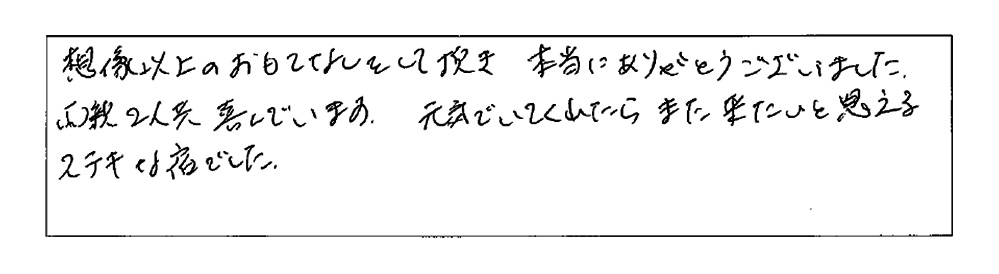 想像以上のおもてなしをして頂き 本当にありがとうございました.
両親2人共 喜んでいます. 元気でいてくれたら また 来たいと思える
ステキな宿でした.